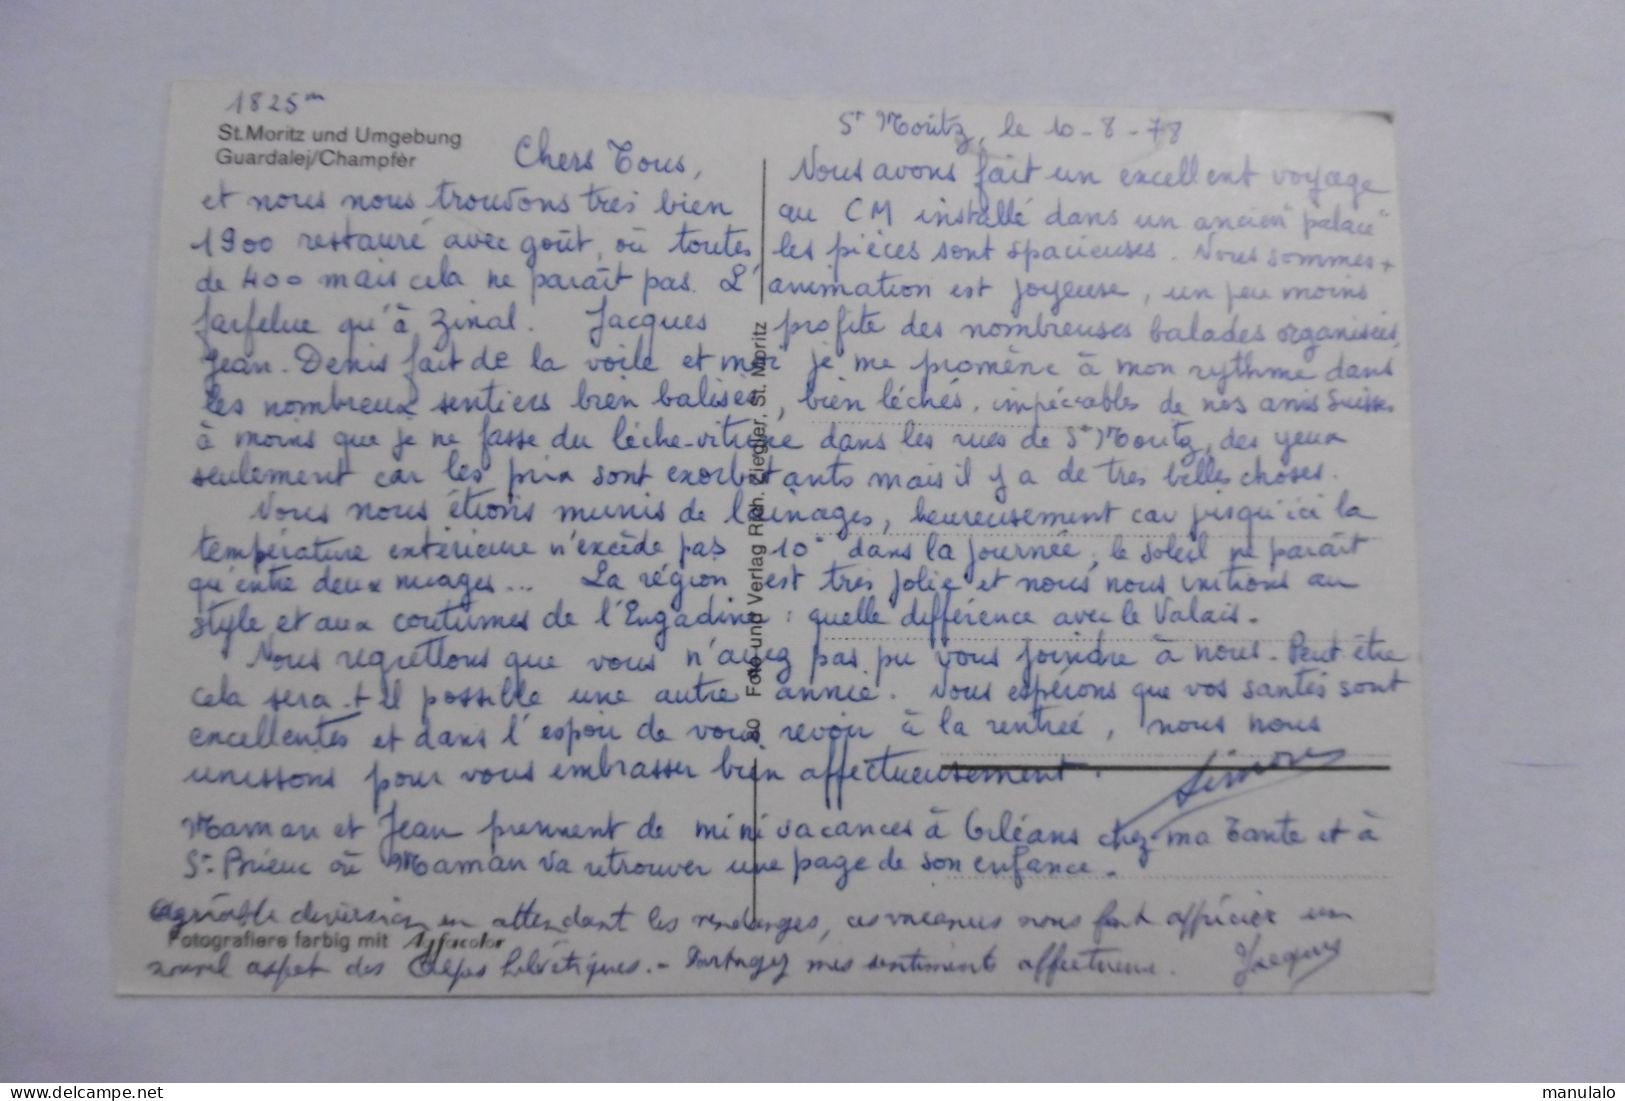 1825 m
St. Moritz und Umgebung
Guardalej/Champfèr
St Moritz, le 10-8-78
Chers Tous, Nous avons fait un excellent voyage
et nous nous trouvons très bien au CM installé dans un ancien "palace"
1900 restauré avec goût, où toutes les pièces sont spacieuses. Nous sommes +
de 400 mais cela ne paraît pas. L'animation est joyeuse, un peu moins
farfelue qu'à Zinal. Jacques profite des nombreuses balades organisées,
Jean-Denis fait de la voile et moi je me promène à mon rythme dans
les nombreux sentiers bien balisés, bien léchés, impéccables de nos amis Suisses
à moins que je ne fasse du lèche-vitrine dans les rues de St Moritz, des yeux
seulement car les prix sont exorbitants mais il y a de très belles choses.
Nous nous étions munis de lainages, heureusement car jusqu'ici la
température extérieure n'excède pas 10° dans la journée, le soleil ne paraît
qu'entre deux nuages... La région est très jolie et nous nous initions au
style et aux coutumes de l'Engadine : quelle différence avec le Valais.
Nous regrettons que vous n'ayez pas pu vous joindre à nous. Peut être
cela sera-t-il possible une autre année. Nous espérons que vos santés sont
excellentes et dans l'espoir de vous revoir à la rentrée, nous nous
unissons pour vous embrasser bien affectueusement.
Simone
Maman et Jean prennent de mini vacances à Orléans chez ma Tante et à
St-Brieuc où Maman va retrouver une page de son enfance.
Agréable diversion en attendant les vendanges, ces vacances nous font apprécier un
Fotografiere farbig mit Agfacolor
nouvel aspect des Alpes helvétiques. - Partagez mes sentiments affectueux. Jacques
80 Foto und Verlag Rich. Ziegler, St. Moritz
manulalo